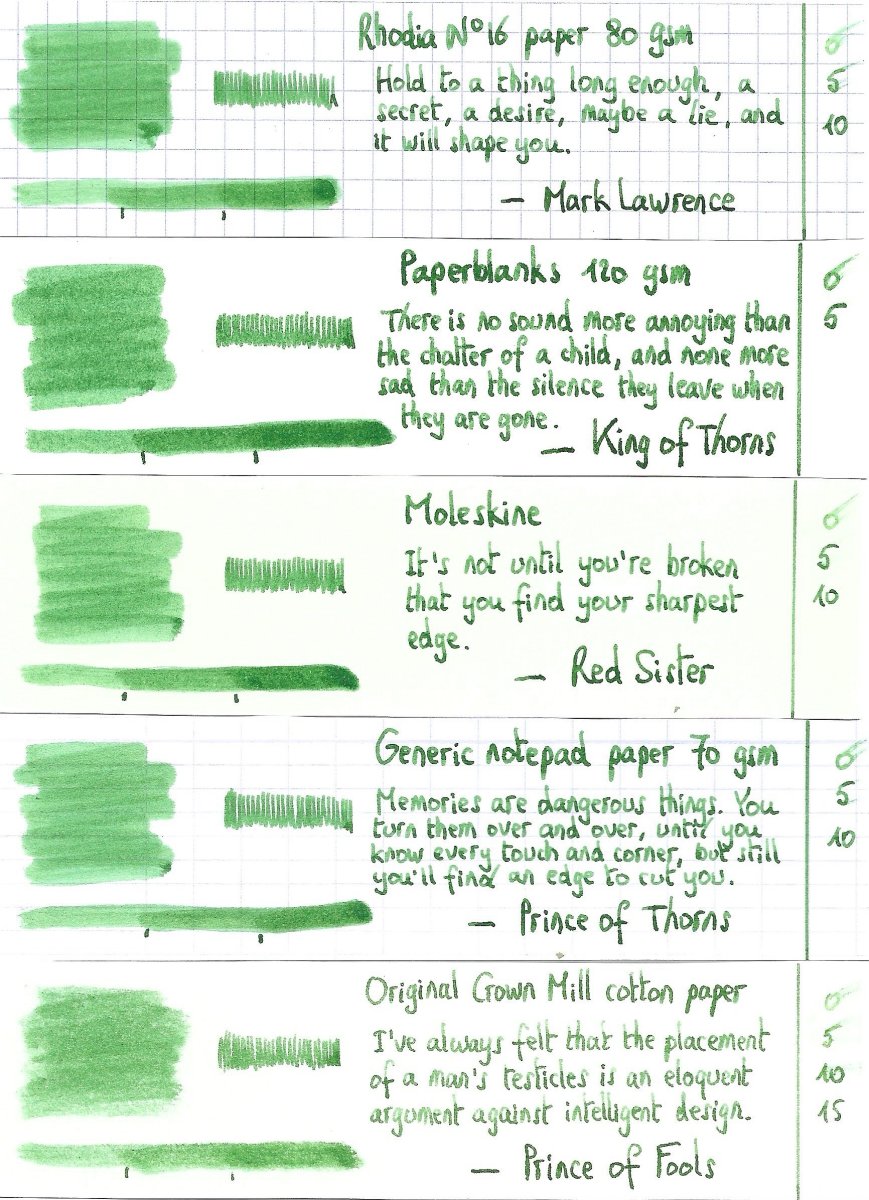 Rhodia N°16 paper 80 gsm
Hold to a thing long enough, a
secret, a desire, maybe a lie, and
it will shape you.
— Mark Lawrence
0
5
10
Paperblanks 120 gsm
There is no sound more annoying than
the chatter of a child, and none more
sad than the silence they leave when
they are gone.
— King of Thorns
0
5
Moleskine
It's not until you're broken
that you find your sharpest
edge.
— Red Sister
0
5
10
Generic notepad paper 70 gsm
Memories are dangerous things. You
turn them over and over, until you
know every touch and corner, but still
you'll find an edge to cut you.
— Prince of Thorns
0
5
10
Original Crown Mill cotton paper
I've always felt that the placement
of a man's testicles is an eloquent
argument against intelligent design.
— Prince of Fools
0
5
10
15